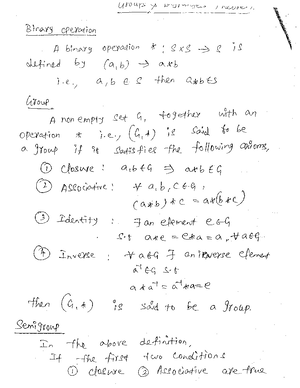 Groups & Lagrange's Theorem.
Binary operation
A binary operation * : S×S → S is
defined by (a,b) → a*b
i.e., a, b ∈ S then a*b ∈ S
Group
A non empty set G, together with an
operation * i.e., (G,*) is said to be
a group if it satisfies the following axioms,
① closure : a,b ∈ G ⇒ a*b ∈ G
② Associative : ∀ a,b,c ∈ G,
(a*b)*c = a*(b*c)
③ Identity : ∃ an element e ∈ G
s.t a*e = e*a = a, ∀ a ∈ G
④ Inverse : ∀ a ∈ G ∃ an inverse element
a⁻¹ ∈ G s.t
a*a⁻¹ = a⁻¹*a = e
then (G,*) is said to be a group.
Semigroup
In the above definition,
If the first two conditions
① closure ② Associative are true